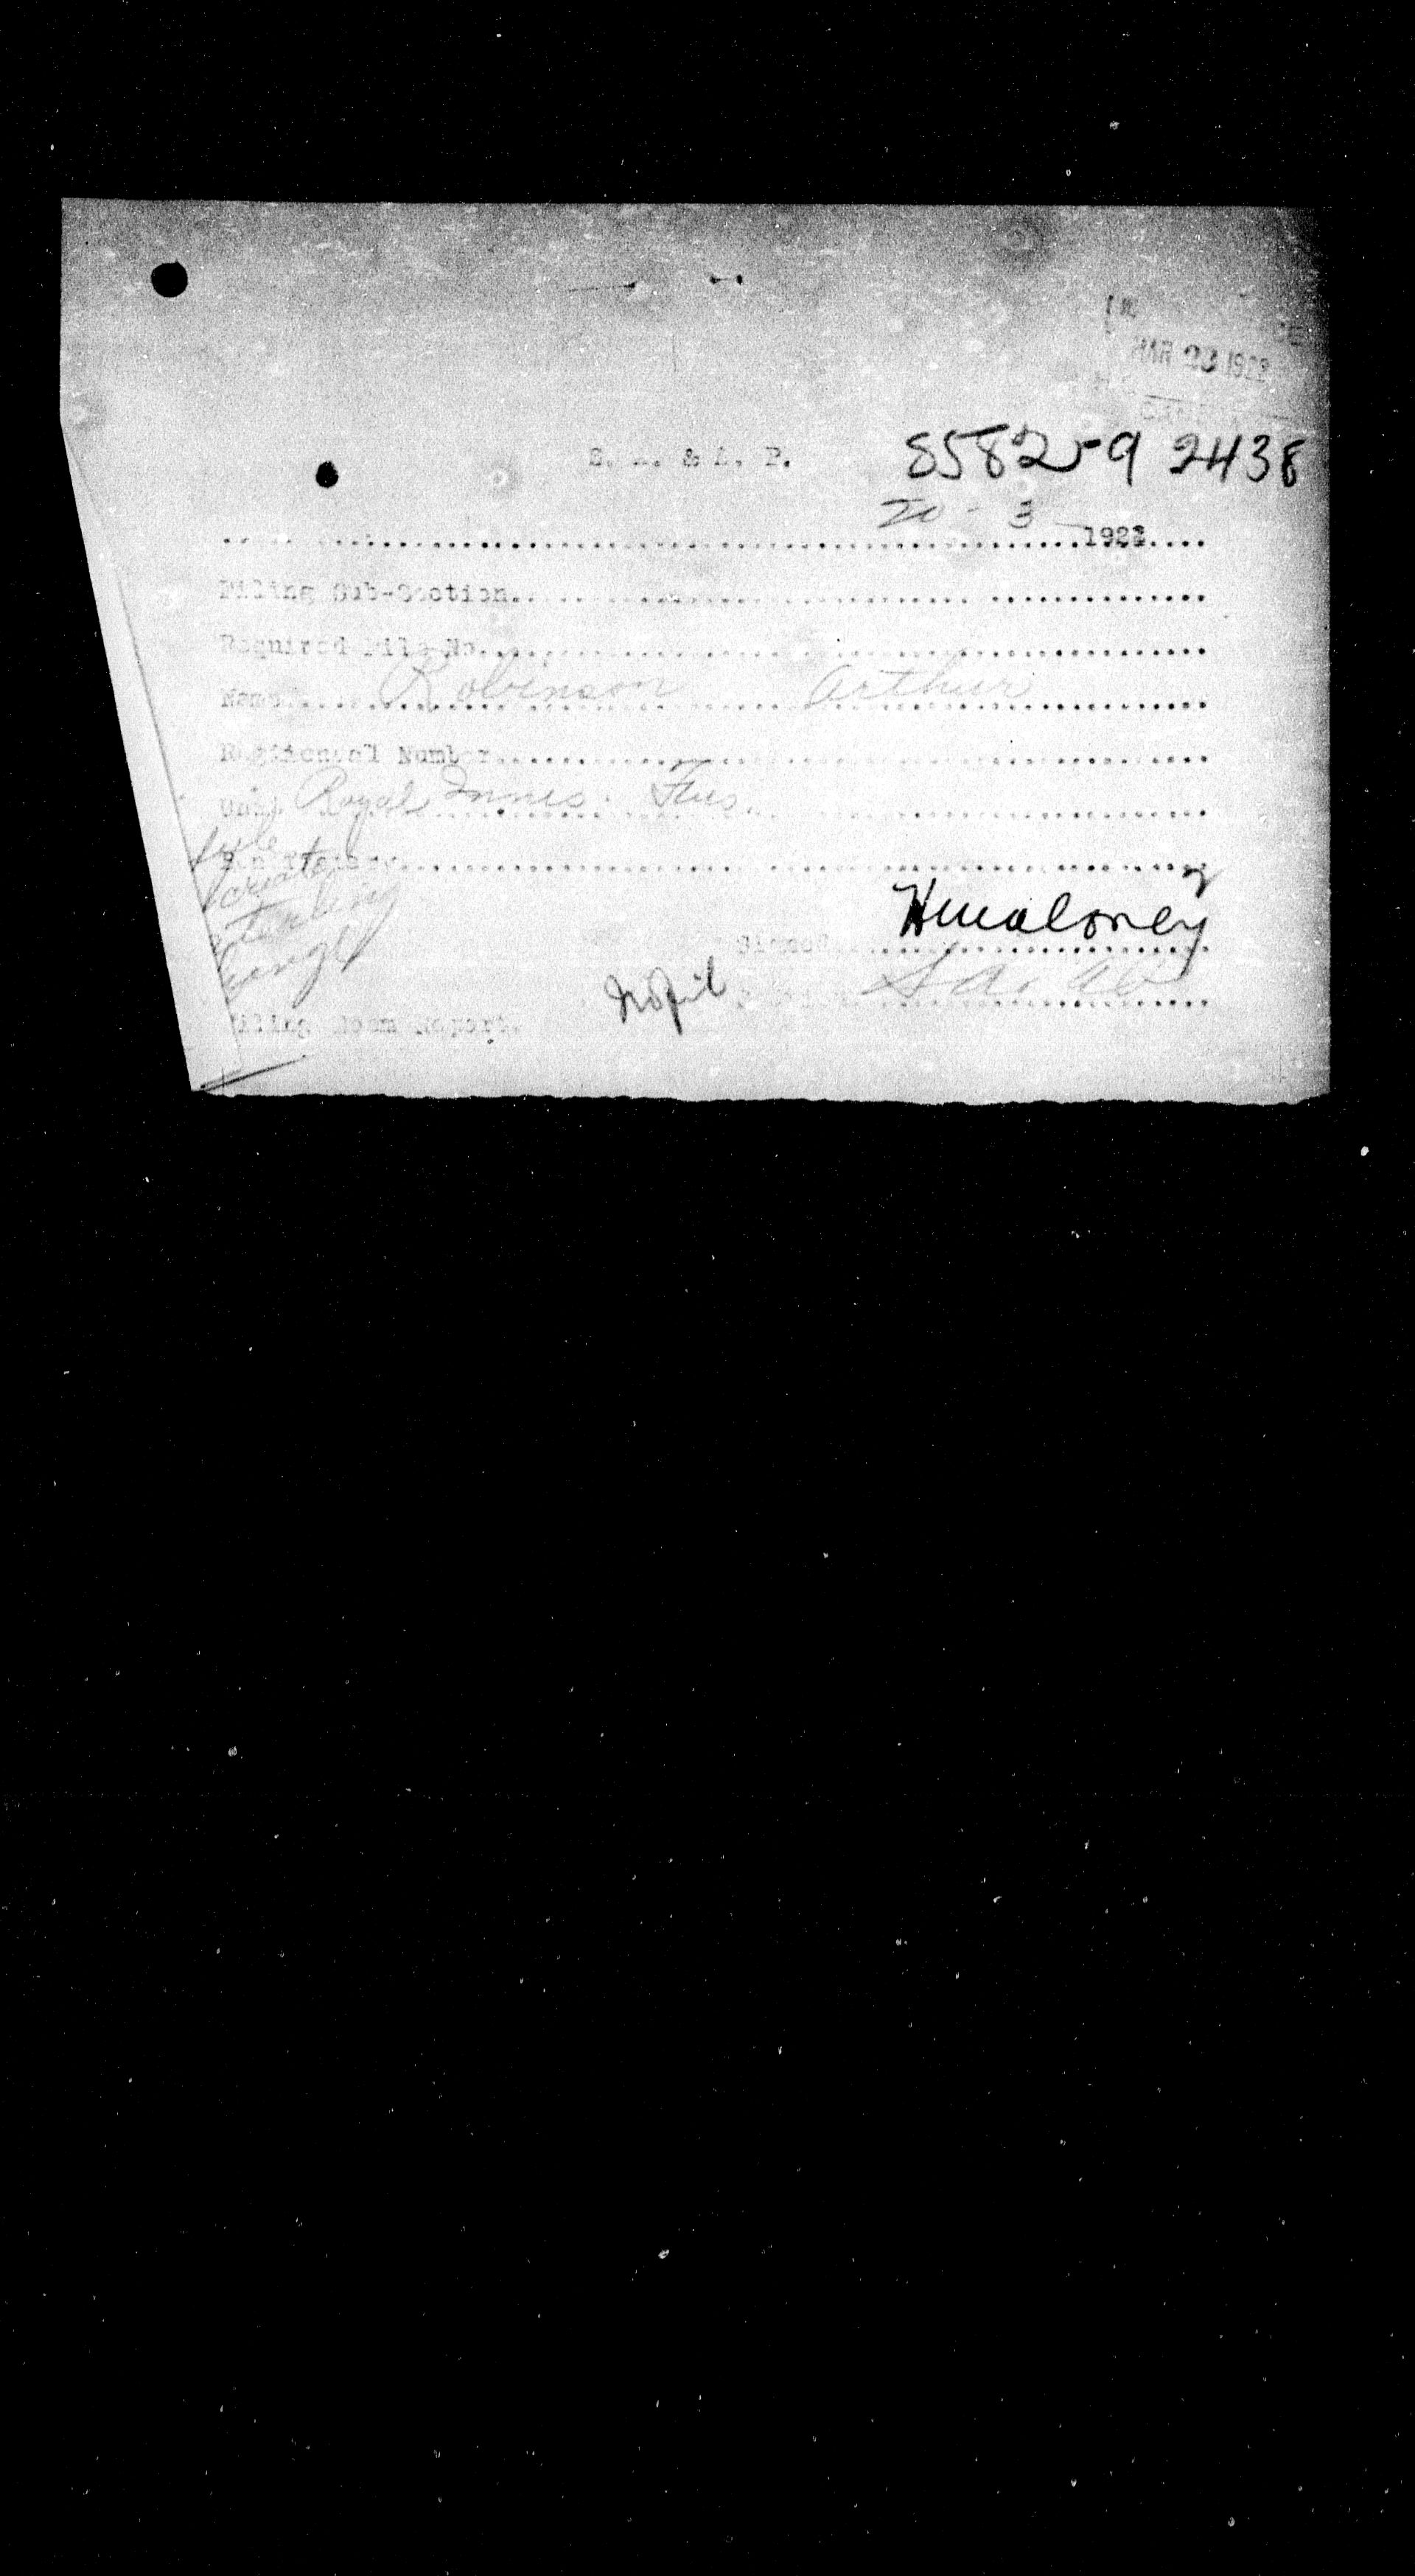 MAR 23 1922
S. A. & A. P.
85825-9 2438
20 - 3 1922
Filing Sub-Section
Required File No.
Name Robinson Arthur
Regimental Number
Unit Royal Innis. Fus.
file
create
Signed Hmaloney
No file
Filing Room Report.